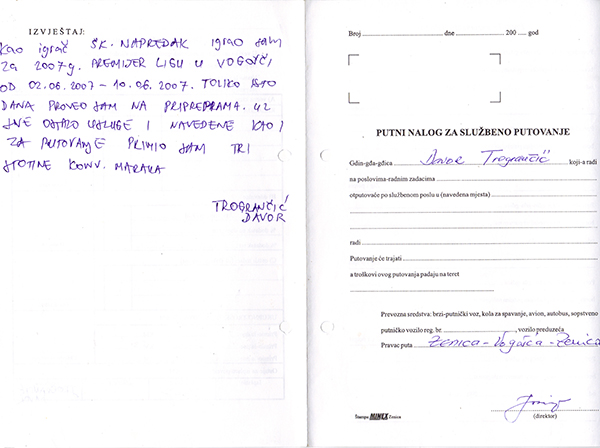 IZVJEŠTAJ:
Kao igrač ŠK. NAPREDAK igrao sam
za 2007g. PREMIJER LIGU U VOGOŠĆI,
OD 02.06.2007 - 10.06.2007. TOLIKO ISTO
DANA PROVEO SAM NA PRIPREPRAMA. UZ
SVE OSTALO USLUGE I NAVEDENE KAO I
ZA PUTOVANJE PRIMIO SAM TRI
STOTINE KONV. MARAKA
TROGRANČIĆ
DAVOR
Broj dne 200 god
PUTNI NALOG ZA SLUŽBENO PUTOVANJE
Gdin-gđa-gđica Davor Trogrančić koji-a radi
na poslovima-radnim zadacima
otputovaće po službenom poslu u (navedena mjesta)
radi
Putovanje će trajati
a troškovi ovog putovanja padaju na teret
Prevozna sredstva: brzi-putnički voz, kola za spavanje, avion, autobus, sopstveno
putničko vozilo reg. br. , vozilo preduzeća
Pravac puta ZENICA - Vogošća - Zenica
(direktor)
Štampa MINEX Zenica